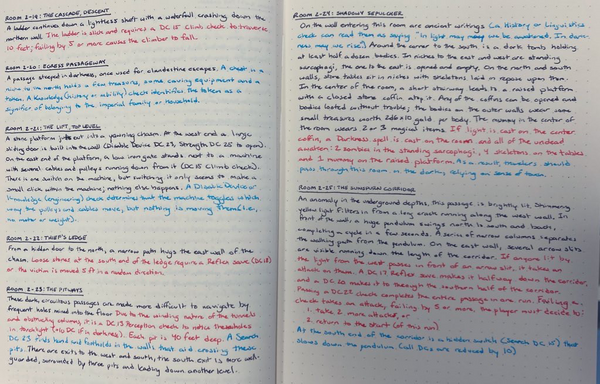 ROOM 2-19: THE CASCADE, DESCENT
A ladder continues down a lightless shaft with a waterfall crashing down the
northern wall. The ladder is slick and requires a DC 15 Climb check to traverse
10 feet; failing by 5 or more causes the climber to fall.
ROOM 2-20: EGRESS PASSAGEWAY
A passage steeped in darkness, once used for clandestine escapes. A chest in a
niche to the north holds a few treasures, some caving equipment and a
token. A Knowledge (history or nobility) check identifies the token as a
signifier of belonging to the imperial family or household.
ROOM 2-21: THE LIFT, TOP LEVEL
A stone platform juts out into a yawning chasm. At the west end a large
sliding door is built into the wall (Disable Device DC 23, Strength DC 25 to open).
On the east end of the platform, a low iron gate stands next to a machine
with several cables and pulleys running down from it (DC 15 Climb checks).
There is one switch on the machine, but switching it only seems to make a
small click within the machine; nothing else happens. A Disable Device or
Knowledge (engineering) check determines that the machine toggles which
way the pulleys and cables move, but nothing is moving them (i.e.,
no motor or weight).
ROOM 2-22: THIEF'S LEDGE
From a hidden door to the north, a narrow path hugs the east wall of the
chasm. Loose stones at the south end of the ledge require a Reflex save (DC 18)
or the victim is moved 5 ft in a random direction.
ROOM 2-23: THE PITWAYS
These dark, circuitous passages are made more difficult to navigate by
frequent holes mined into the floor. Due to the winding nature of the tunnels
and obstructing columns, it is a DC 15 Perception check to notice these holes
in torchlight (+10 DC if in darkness). Each pit is 40 feet deep. A Search
DC 23 finds hand and footholds in the walls that aid crossing these
pits. There are exits to the west and south; the south exit is more well-
guarded, surrounded by three pits and leading down another level.
ROOM 2-24: SHADOWY SEPULCHER
On the wall entering this room are ancient writings (a History or Linguistics
check can read them as saying "In light may they be awakened. In dark-
ness may we rise"). Around the corner to the south is a dark tomb holding
at least half a dozen bodies. In niches to the east and west are standing
sarcophagi, the one to the east is opened and empty. On the north and
south walls, stone tables sit in niches with skeletons laid in repose upon them.
In the center of the room, a short stairway leads to a raised platform
with a closed stone coffin atop it. Any of the coffins can be opened and
bodies looted without trouble; the bodies on the outer walls wear some
small treasures worth 2d6x10 gold per body. The mummy in the center of
the room wears 2 or 3 magical items. If light is cast on the center
coffin, a Darkness spell is cast on the room and all of the undead
awaken: 2 zombies in the standing sarcophagi, 4 skeletons on the tables
and 1 mummy on the raised platform. As a result, travelers should
pass through this room in the dark, relying on sense of touch.
ROOM 2-25: THE SUNSWEPT CORRIDOR
An anomaly in the underground depths, this passage is brightly lit. Shimmering
yellow light filters in from a long crack running along the west wall. In
front of the wall, a huge pendulum swings north to south and back,
completing a cycle in a few seconds. A series of narrow columns separates
the walking path from the pendulum. On the east wall, several arrow slits
are visible running down the length of the corridor. If anyone lit by
the light from the west passes in front of an arrow slit, it takes an
attack on them. A DC 17 Reflex save makes it halfway down the corridor,
and a DC 20 makes it through the southern half of the corridor.
Passing a DC 25 check completes the entire passage in one run. Failing a
check takes an attack, failing by 5 or more, the player must decide to:
1. take 2 more attacks, or
2. return to the start (of this run)
At the south end of the corridor is a hidden switch (Search DC 15) that
slows down the pendulum (all DCs are reduced by 10)